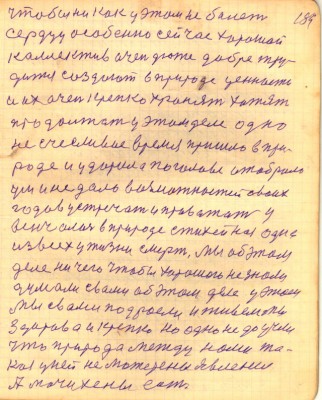 чтобы никак у этом не болет 199
сердцу особенно сейчас хороший
коллектив очен дюже добре тру-
дится создают в природе ценности
и их очен крепко хранят хотят
продолжат у этом деле одно
не счесливае время пришло в при-
роде и ударила по голове и забрала
ум и не дало возможностей своих
годов устречат и проважат у
венчалас в природе стихейная одна
из всех у жизни смерт, мы об этом
деле ничего чтобы хорошого не знали
думали с вами об этом деле у этом
мы с вами подросли и живем мы
здорова и крепко но одно не доучли
что природа между нами та-
кая у ней не
А мачихены есть